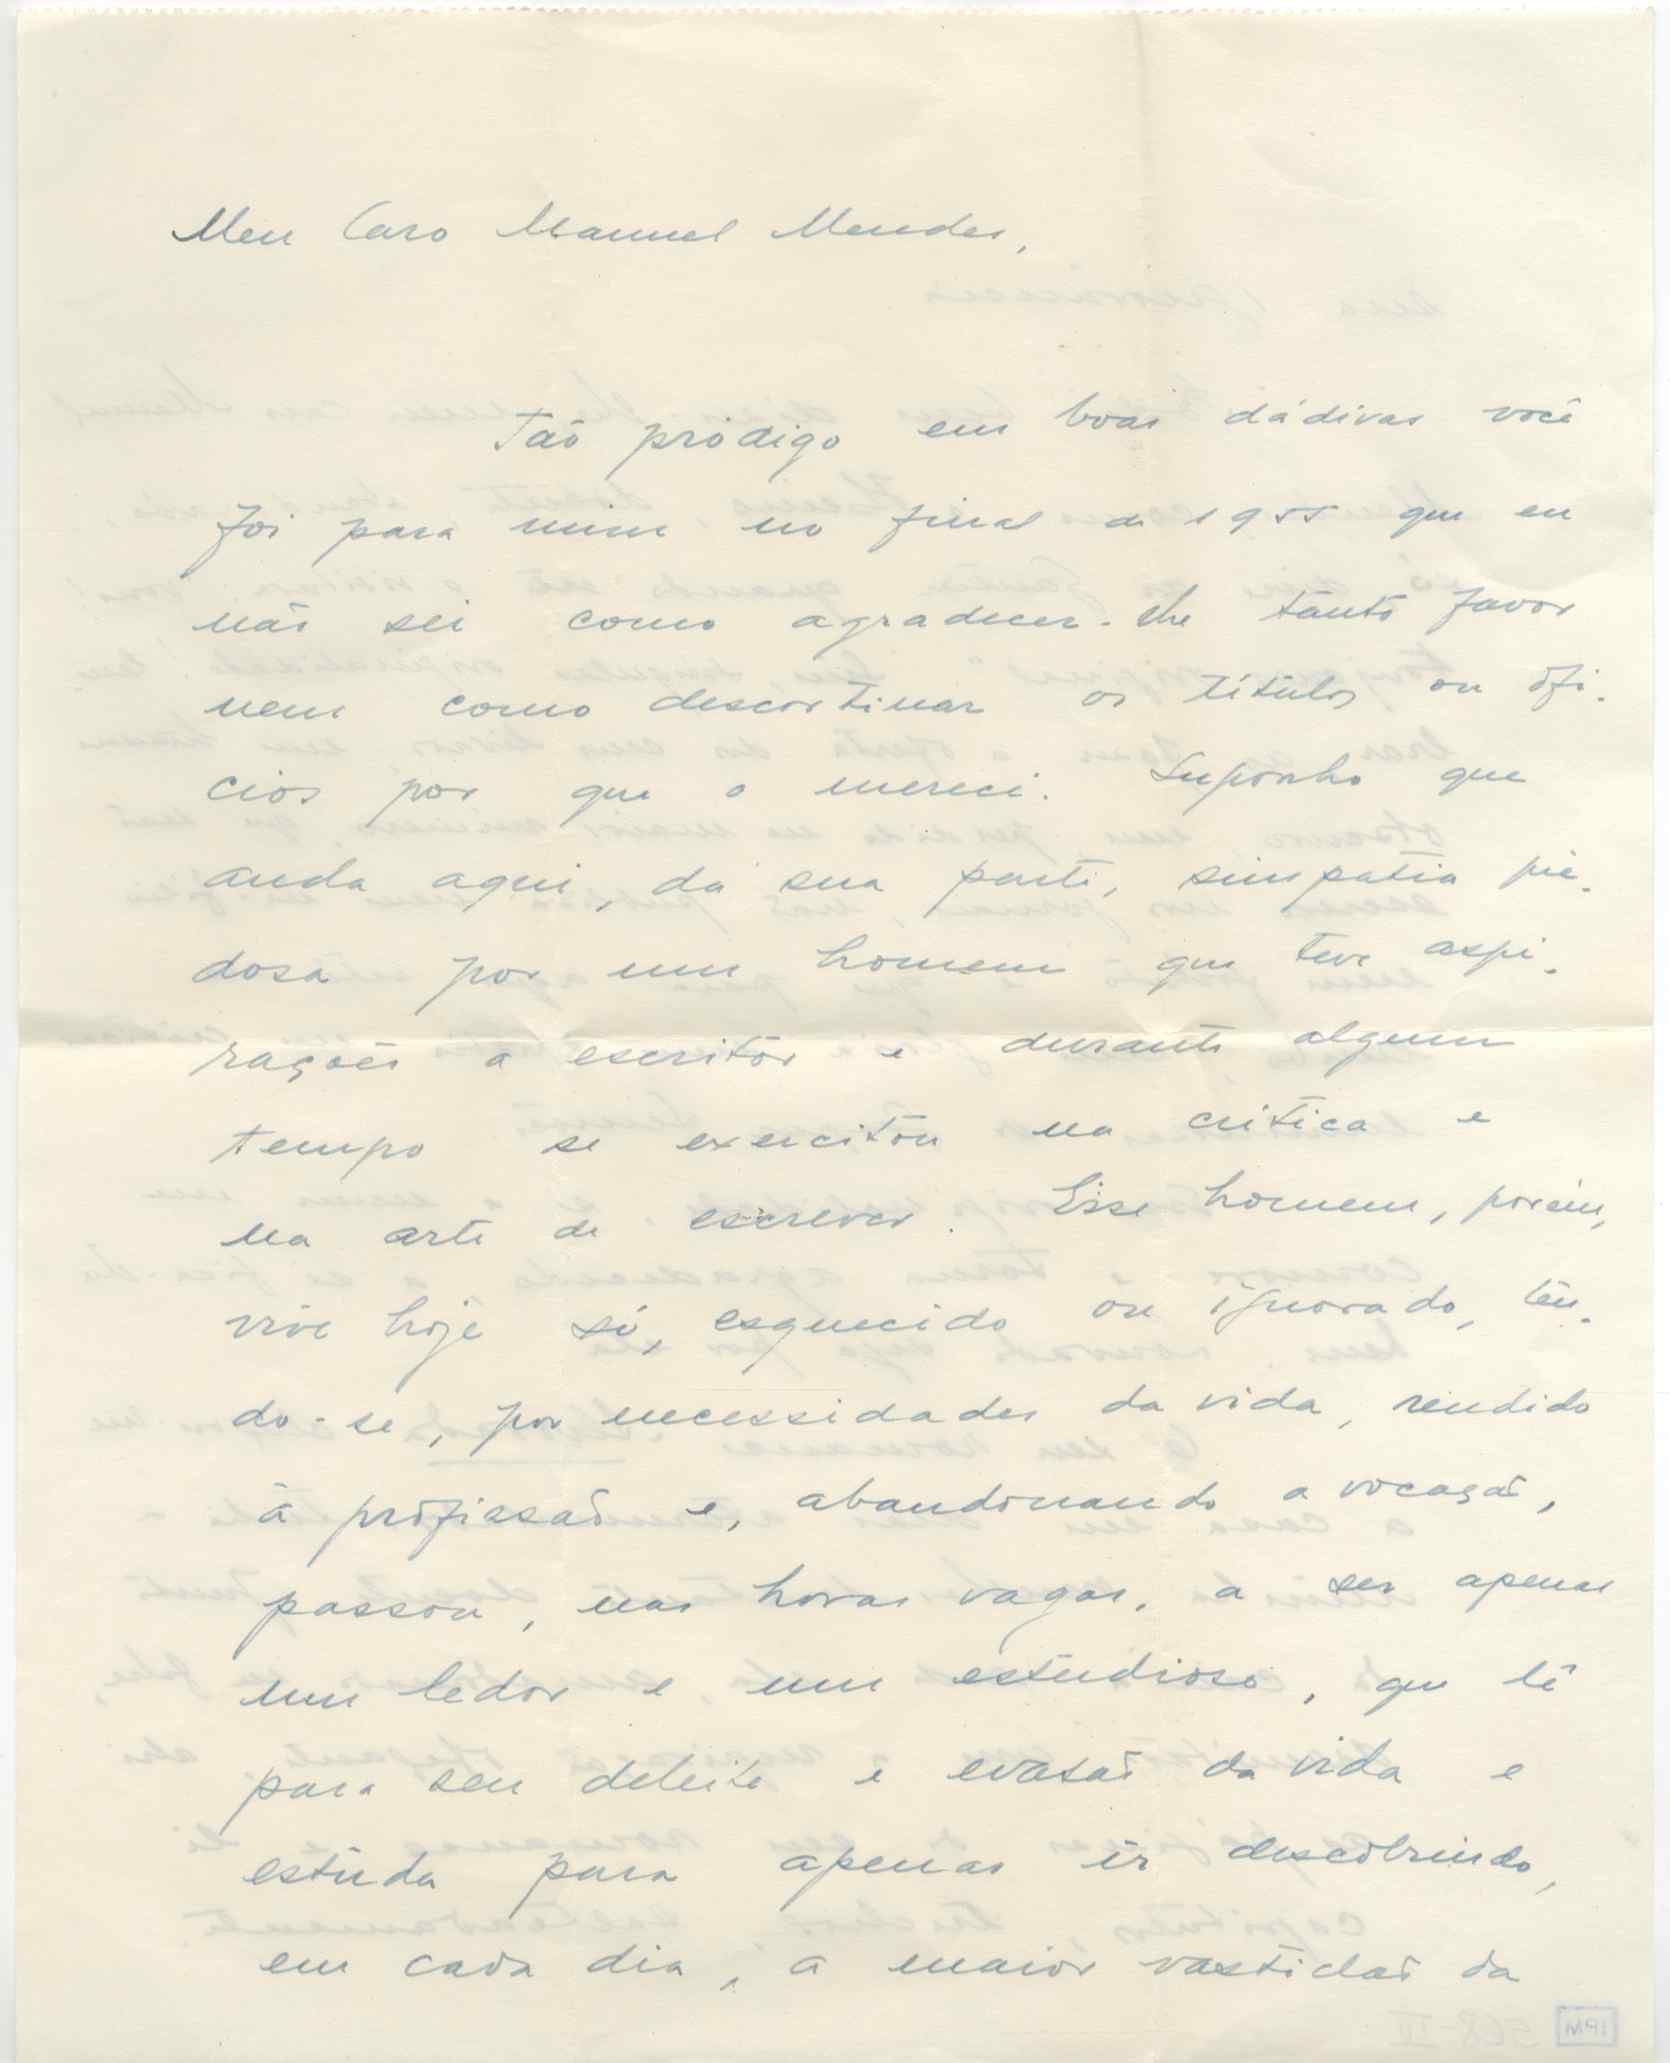 Meu Caro Manuel Mendes,
Tão pródigo em boas dádivas você
foi para mim no final de 1955 que eu
não sei como agradecer-lhe tanto favor
nem como descortinar os títulos ou ofi-
cios por que o mereci. Suponho que
anda aqui, da sua parte, simpatia pie-
dosa por um homem que teve aspi-
rações a escritor e durante algum
tempo se exercitou na crítica e
na arte de escrever. Esse homem, porém,
vive hoje só, esquecido ou ignorado, ten-
do-se, por necessidades da vida, rendido
à profissão e, abandonando a vocação,
passou, nas horas vagas, a ser apenas
um ledor e um estudioso, que lê
para seu deleite e evasão da vida e
estuda para apenas ir descobrindo,
em cada dia, a maior vastidão da